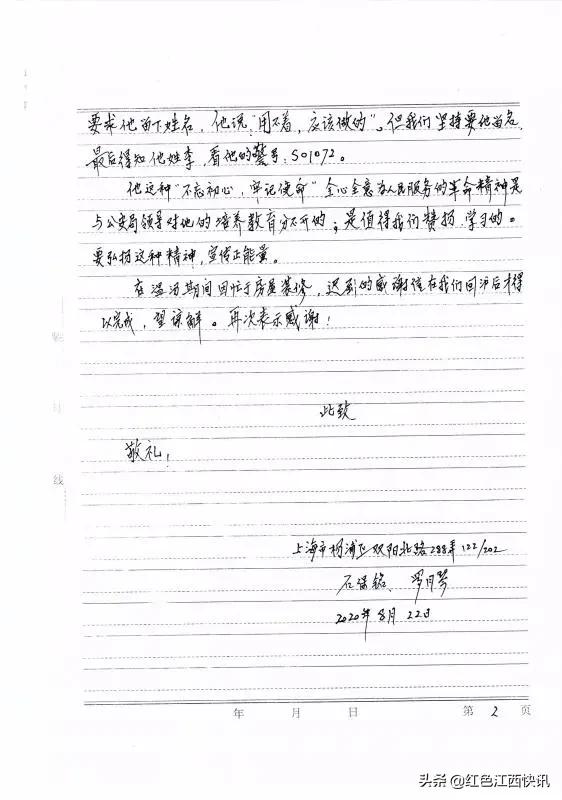 要求他留下姓名，他说"用不着，应该做的"。但我们坚持要他留名，
最后得知他姓李，看他的警号：S01072。
他这种"不忘初心，牢记使命"全心全意为人民服务的革命精神是
与公安局领导对他的培养教育分不开的；是值得我们赞扬、学习的。
要弘扬这种精神，宣传正能量。
在温汤期间因忙于房屋装修，迟到的感谢信在我们回沪后才得
以完成，望谅解。再次表示感谢！
此致
敬礼！
上海市杨浦区双阳北路288弄122/202
石保铭、罗月琴
2020年8月22日
装
订
线
年 月 日 第 2 页
头条 @红色江西快讯